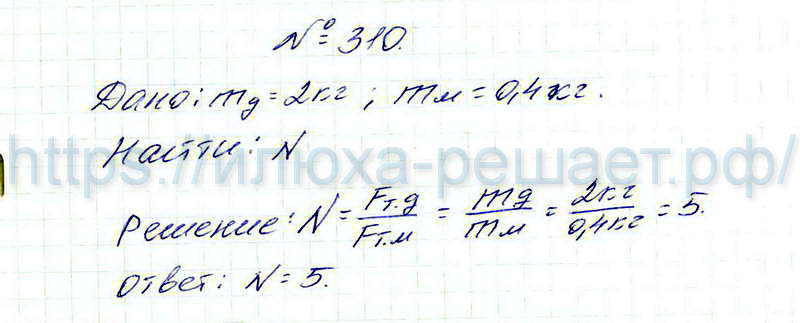 № 310.
Дано: mд = 2кг ; mм = 0,4кг.
https://илюха-решает.рф/
Найти: N
Решение: N = Fт.д / Fт.м = mд / mм = 2кг / 0,4кг = 5.
Ответ: N = 5.